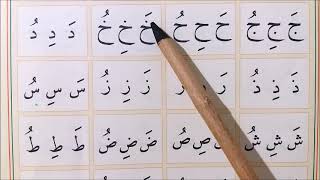 جَ جِ جُ حَ حِ حُ خَ خِ خُ دَ دِ دُ
ذَ ذِ ذُ رَ رُ زَ زِ زُ سَ سِ سُ
شَ شِ شُ صِ صُ ضَ ضِ ضُ طَ طِ طُ